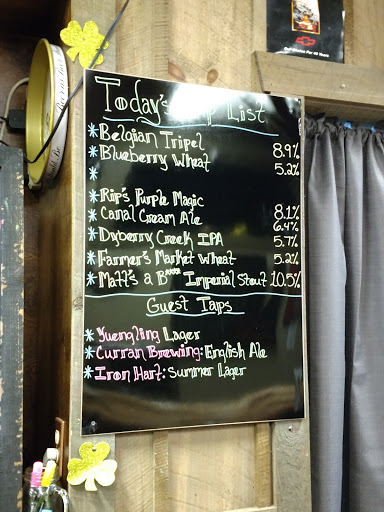 Today's Tap List
* Belgian Tripel 8.9%
* Blueberry Wheat 5.2%
*
* Rip's Purple Magic 8.1%
* Canal Cream Ale 6.4%
* Dyberry Creek IPA 5.7%
* Farmer's Market Wheat 5.2%
* Matt's a B**** Imperial Stout 10.5%
Guest Taps
* Yuengling Lager
* Curran Brewing: English Ale
* Iron Hart: Summer Lager